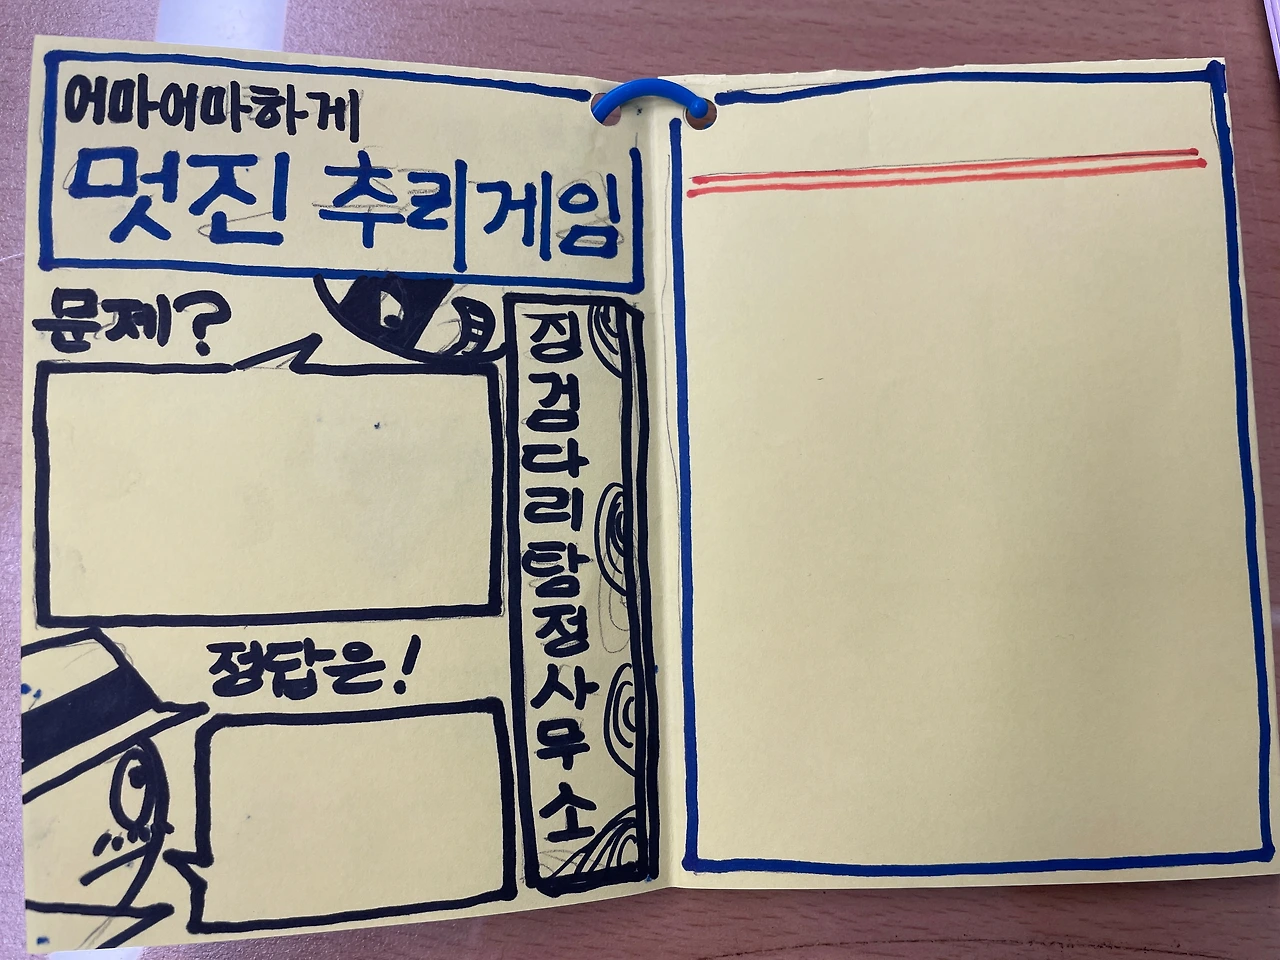 어마어마하게
멋진 추리게임
문제?
징검다리탐정사무소
정답은!